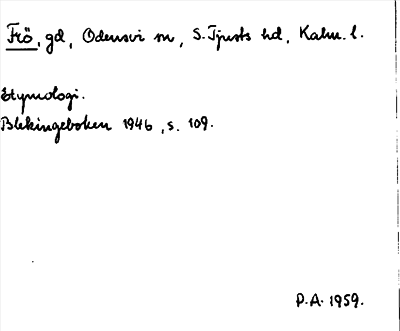 Frö, gd, Odensvi sn, S. Tjusts hd, Kalm. l.
Etymologi.
Blekingeboken 1946, s. 109.
P.A. 1959.